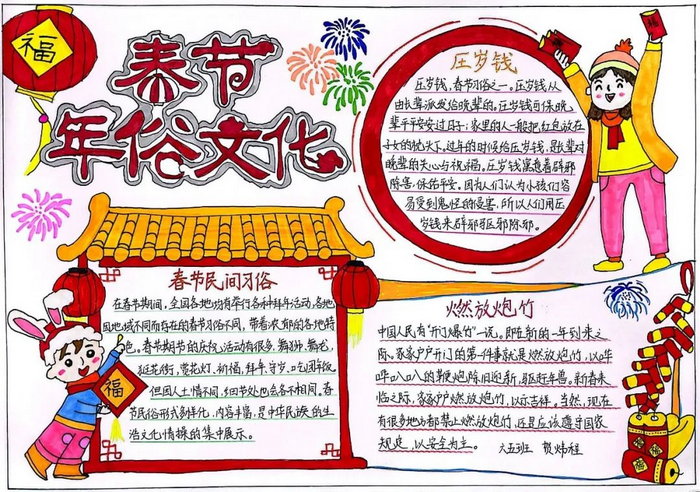 福
春节
年俗文化
压岁钱
压岁钱,春节习俗之一。压岁钱从
由长辈派发给晚辈的。压岁钱可保晚
辈平平安安过日子;家里的一般把红包放在
子女的枕头下,过年的时候给压岁钱,是长辈对
晚辈的关心与祝福。压岁钱寓意着辟邪
除害,保佑平安。因为人们认为小孩们容
易受到鬼怪的侵害,所以人们用压
岁钱来辟邪驱邪除邪。
春节民间习俗
在春节期间,全国各地均有举行各种拜年活动,各地
因地域不同而存在的春节习俗不同,带着浓郁的各地特
色。春节期节的庆祝活动有很多,舞狮、舞龙、
逛花街、赏花灯、祈福、拜年、守岁、吃团年饭
但因人土情不同,细节处也会各不相同。春
节民俗形式多样化、内容丰富,是中华民族的生
活文化情操的集中展示。
福
燃放炮竹
中国人民有“开门爆竹”一说。即在新的一年到来之
际,家家户户开门的第一件事就是燃放炮竹,以哔
哔叭叭的鞭炮除旧迎新,驱赶年兽。新春来
临之际,家家户户燃放炮竹,以示吉祥。当然,现在
有很多地方都禁止燃放炮竹,还是应该遵守国家
规定,以安全为主。
六五班 贺炜程
福